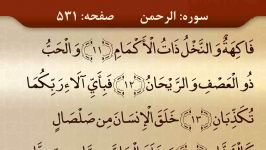 سوره: الرحمن صفحه: ۵۳۱
فَاكِهَةٌ وَالنَّخْلُ ذَاتُ الْأَكْمَامِ ﴿۱۱﴾ وَالْحَبُّ
ذُو الْعَصْفِ وَالرَّيْحَانُ ﴿۱۲﴾ فَبِأَيِّ آلَاءِ رَبِّكُمَا
تُكَذِّبَانِ ﴿۱۳﴾ خَلَقَ الْإِنسَانَ مِن صَلْصَالٍ